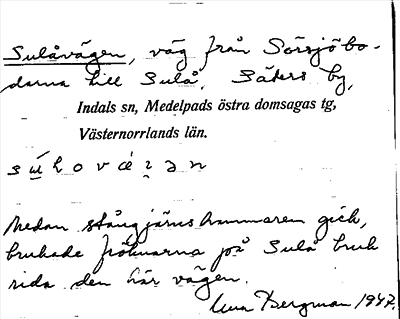 Sulåvägen, väg från Sörsjöbo-
darna till Sulå, Säters by,
Indals sn, Medelpads östra domsagas tg,
Västernorrlands län.
Medan stångjärnshammaren gick,
brukade fröknarna på Sulå bruk
rida den här vägen.
Bergman 1947.